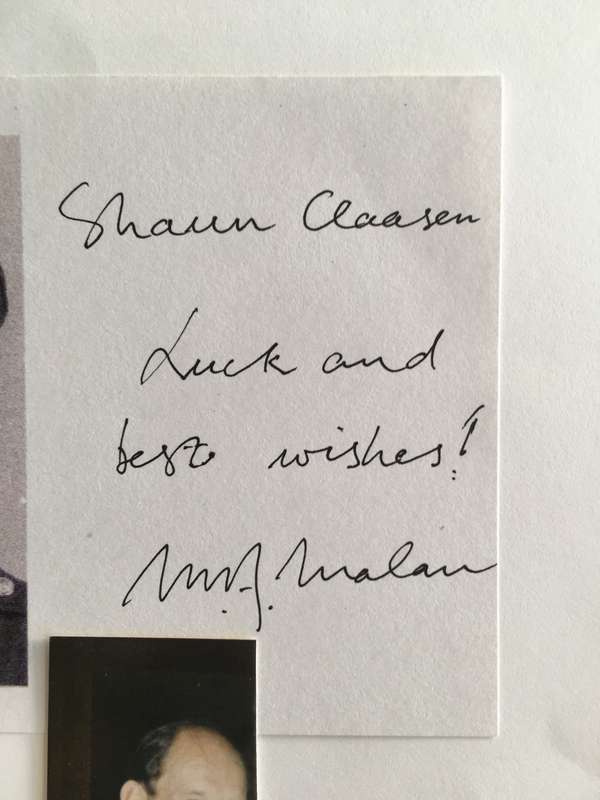 Shaun Claasen
Luck and
best wishes!
M.A. Malan